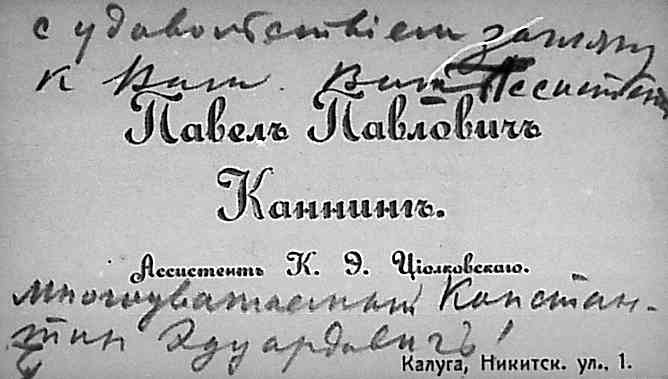 с удовольствіем запишу
к Вам. Ваш Ассистент
Павелъ Павловичъ
Каннингъ.
Ассистентъ К. Э. Ціолковскаго.
многоуважаемый Констан-
тин Эдуардовичъ!
Калуга, Никитск. ул., 1.